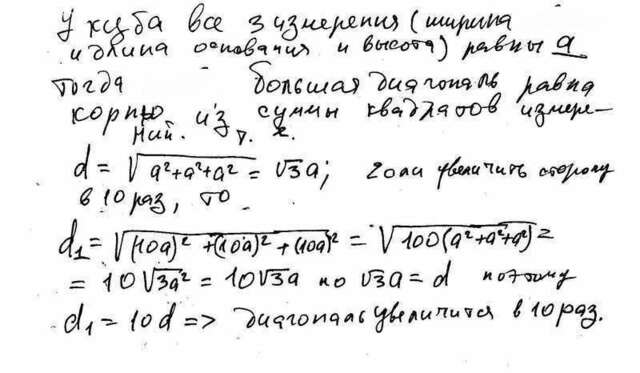 У куба все 3 измерения (ширина
и длина основания и высота) равны a
тогда большая диагональ равна
корню из суммы квадратов измере-
ний. т. к.
d = √(a²+a²+a²) = √3a; если увеличить сторону
в 10 раз, то
d₁ = √((10a)² + (10a)² + (10a)²) = √(100(a²+a²+a²)) =
= 10√(3a²) = 10√3a но √3a = d поэтому
d₁ = 10d => диагональ увеличится в 10 раз.